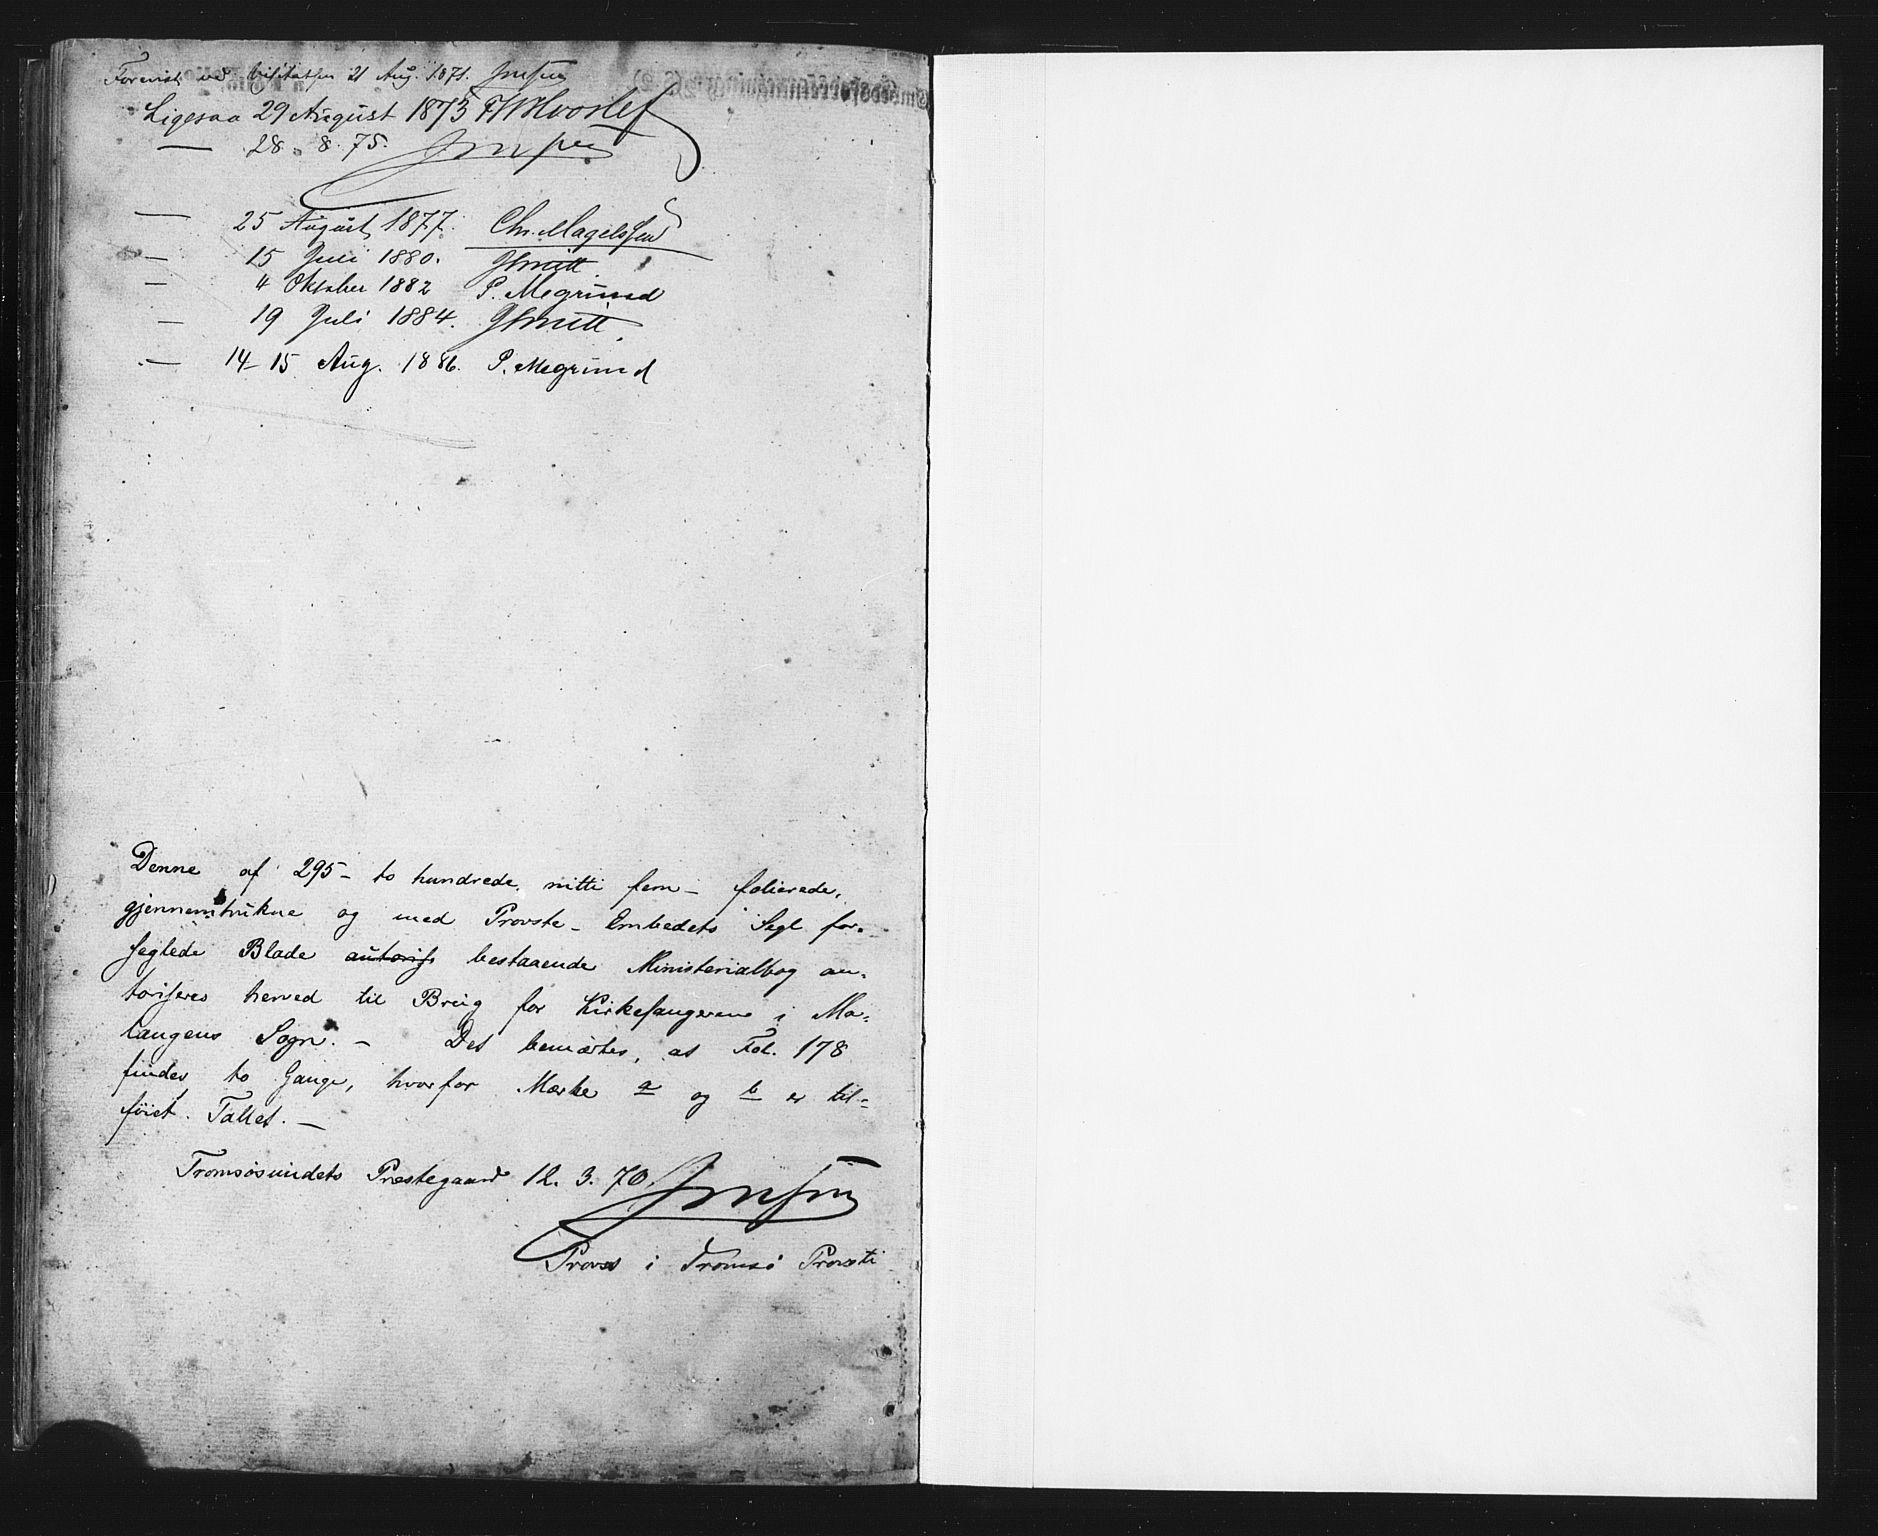 Forevist ved Visitatsen 21 Aug. 1871. Jensen
Ligesaa 29 August 1873 FWHvoslef
— 28. 8. 75. Jensen
— 25 August 1877. Chr. Magelssen
— 15 Juli 1880. JSmitt
— 4 Oktober 1882 P. Megrund
— 19 Juli 1884. JSmitt
— 14-15 Aug. 1886. P. Megrund
Denne af 295 - to hundrede nitti fem - folierede,
gjennemtrukne og med Provste-Embedets Segl for-
seglede Blade autoris bestaaende Ministerialbog au-
toriseres herved til Brug for Kirkesangeren i Ma-
langens Sogn. - Det bemærkes, at Fol. 178
findes to Gange, hvorfor Mærke a og b er til-
føiet Tallet. -
Tromsøsundets Præstegaard 12. 3. 70.
Jensen
Provst i Tromsø Provsti